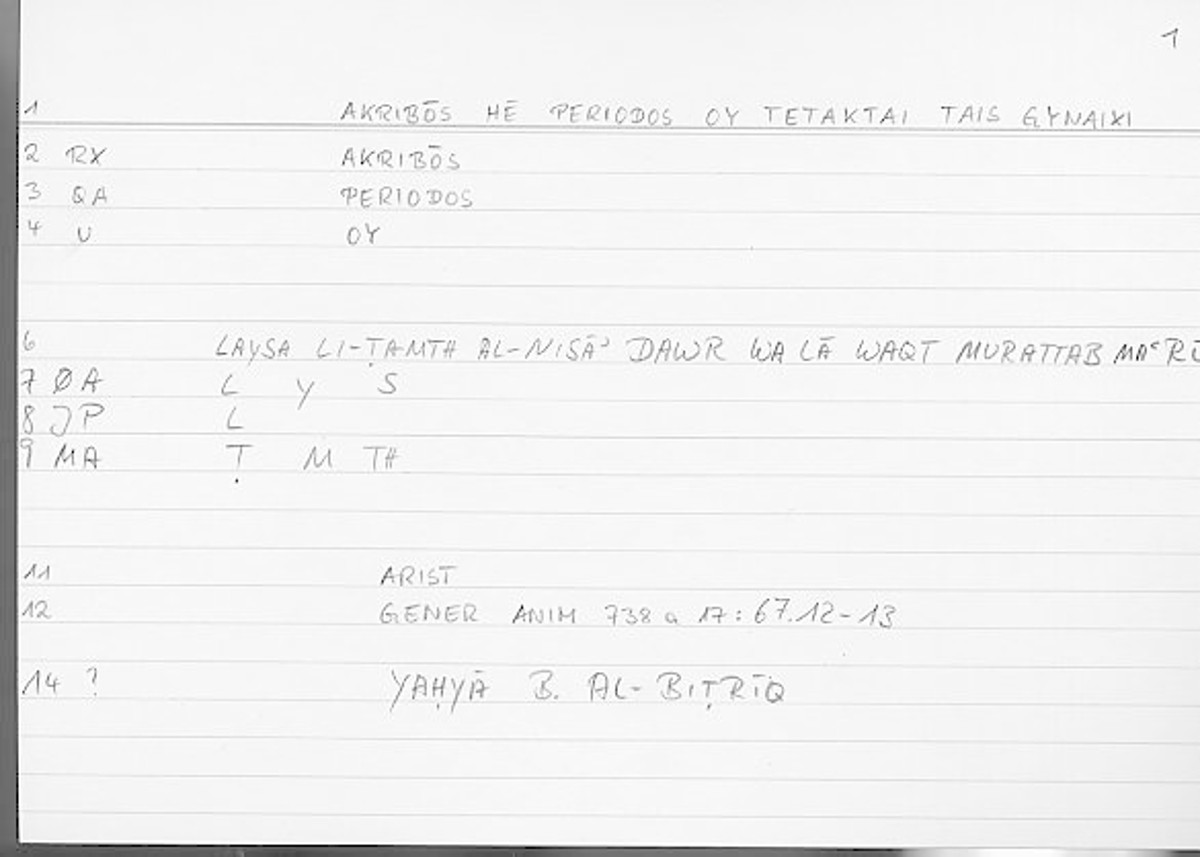 1
1 AKRIBŌS HĒ PERIODOS OY TETAKTAI TAIS GYNAIXI
2 RX AKRIBŌS
3 QA PERIODOS
4 U OY
6 LAYSA LI-ṬAMTH AL-NISĀʾ DAWR WA LĀ WAQT MURATTAB MAʿRŪ
7 ØA L Y S
8 JP L
9 MA Ṭ M TH
11 ARIST
12 GENER ANIM 738 a 17 : 67.12-13
14 ? YAḤYĀ B. AL-BIṬRĪQ